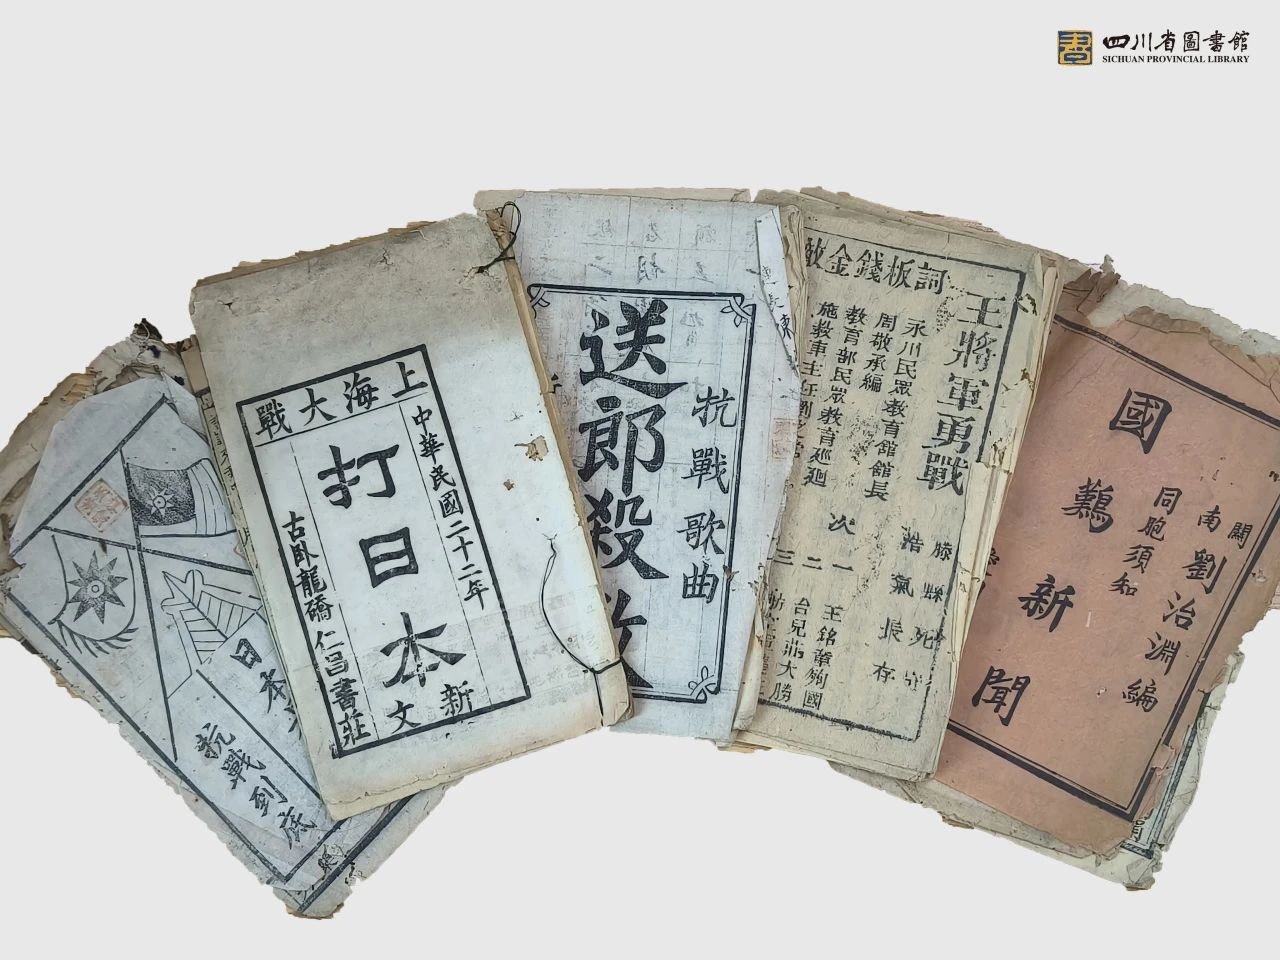 四川省圖書館
SICHUAN PROVINCIAL LIBRARY
抗戰到底
上海大戰
中華民國二十二年
打日本
新文
古臥龍橋仁昌書莊
抗戰歌曲
送郎殺
金錢板詞
王將軍勇戰
永川民眾教育館館長
周敬承編
教育部民眾教育巡迴
施教車主任劉
滕縣死守
浩氣長存
次
一 王銘章殉國
二 台兒莊大勝
三
國難新聞
同胞須知
閬南劉治淵編